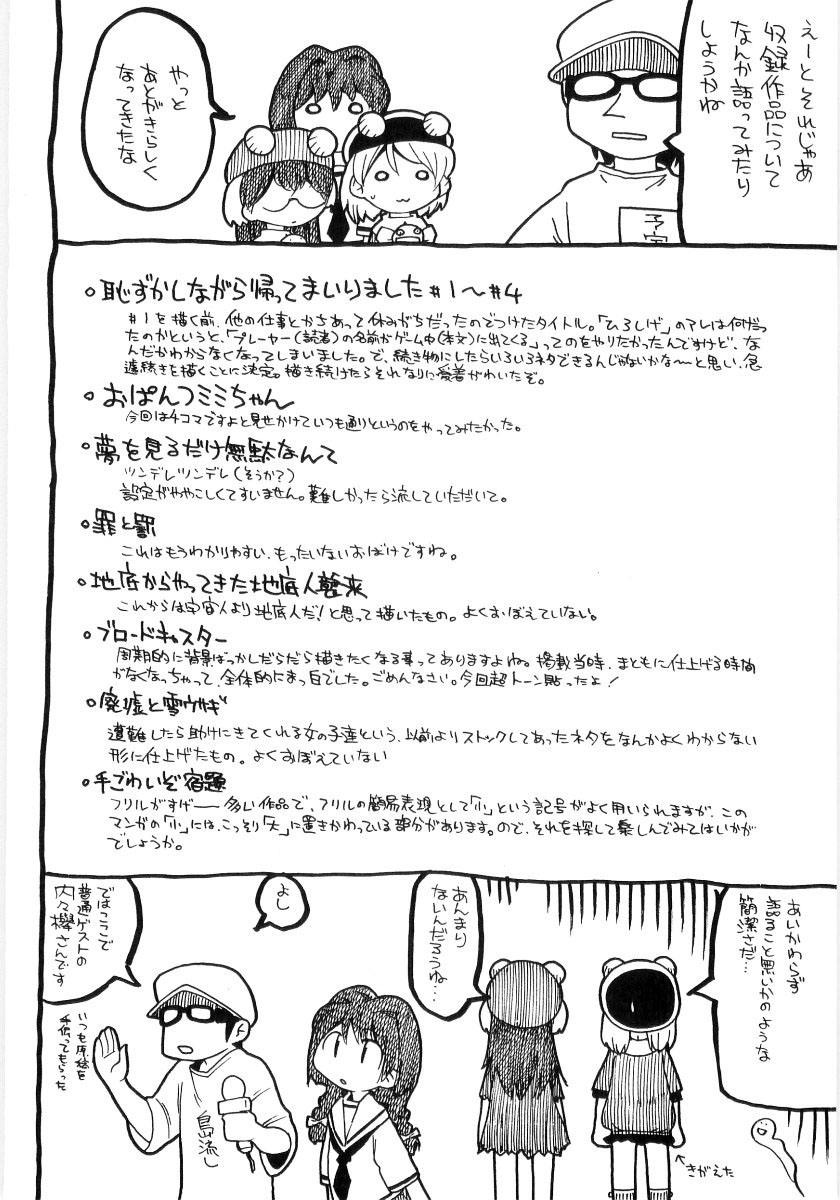 えーとそれじゃあ
収録作品について
なんか語ってみたり
しようかね
やっと
あとがきらしく
なってきたな
。恥ずかしながら帰ってまいりました#1〜#4
#1を描く前、他の仕事とかちあって休みがちだったのでつけたタイトル。「ひろしげ」のアレは何だっ
たのかというと、「プレーヤー(読者)の名前がゲーム中(本文)に出てくる」ってのをやりたかったんですけど、な
んだかわからなくなってしまいました。で、続き物にしたらいろいろネタできるんじゃないかな〜と思い、急
遽続きを描くことに決定。描き続けたらそれなりに愛着がわいたぞ。
。おぱんつミミちゃん
今回は4コマですよと見せかけていつも通りというのをやってみたかった。
。夢を見るだけ無駄なんて
ツンデレツンデレ(そうか?)
設定がややこしくてすいません。難しかったら流していただいて。
。罪と罰
これはもうわかりやすい、もったいないおばけですね。
。地底からやってきた地底人襲来
これからは宇宙人より地底人だ!と思って描いたもの。よくおぼえていない。
。ブロードキャスター
周期的に背景ばっかしだらだら描きたくなる事ってありますよね。掲載当時、まともに仕上げる時間
がなくなっちゃって、全体的にまっ白でした。ごめんなさい。今回超トーン貼ったよ!
。廃墟と雪ウサギ
遭難したら助けにきてくれる女の子達という、以前よりストックしてあったネタをなんかよくわからない
形に仕上げたもの。よくおぼえていない
。手ごわいぞ宿題
フリルがすげー多い作品で、フリルの簡易表現として「小」という記号がよく用いられますが、この
マンガの「小」には、こっそり「大」に置きかわっている部分があります。ので、それを探して楽しんでみてはいかが
でしょうか。
あいかわらず
語ること悪いかのような
簡潔さだ…
あんまり
ないんだろうね…
きがえた
よし
ではここで
普通ゲストの
内々欅さんです
いつも原絵を
手伝ってもらった
島流し